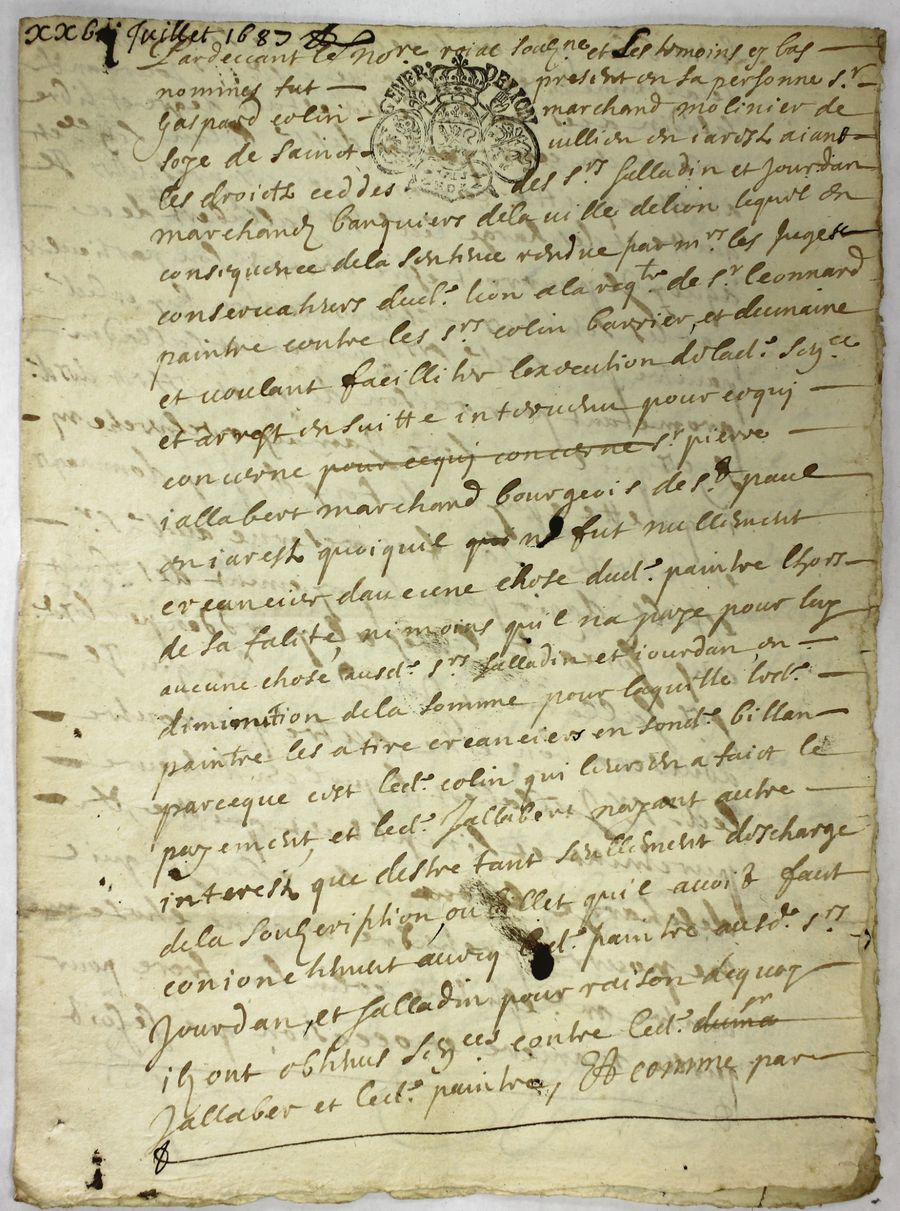 XXbi Juillet 1687
Pardevant le nore royal soubzne et les temoins cy bas
nommes fut present en sa personne sr
Gaspard colin marchand molinier de
GENER. DE LION
soye de sainct iullien en iarestz aiant
les droictz ceddes des srs salladin et Jourdan
marchandz banquiers dela ville delion lequel en
consequence dela sentence rendue par mrs les Juges
conservateurs dudt lion ala reqte de sr leonnard
paintre contre les srs colin barrier, et dumaine
et voulant facilliter lexecution deladte snce
et arrest ensuitte intervenu pour cequi
concerne pour cequi concerne sr pierre
iallabert marchand bourgeois de st paul
en iarestz quoiquil qui ne fut nullement
creancier daucune chose dudt paintre lhors
de sa falite, ni moins quil na paye pour luy
aucune chose ausdt srs salladin et iourdan, en
diminution dela somme pour laquelle ledt
paintre les a tire creanciers en sondt billan
parceque cest ledt colin qui leur en a faict le
payement, et ledt Jallabert nayant autre
interestz que destre tant seullement descharge
dela soubscription, ou billet quil avoit faict
conioinctement avecq ledt paintre ausdt srs
Jourdan, et salladin pour raison dequoy
ilz ont obtenus snces contre ledt
Jallaber et ledt paintre, Et comme par